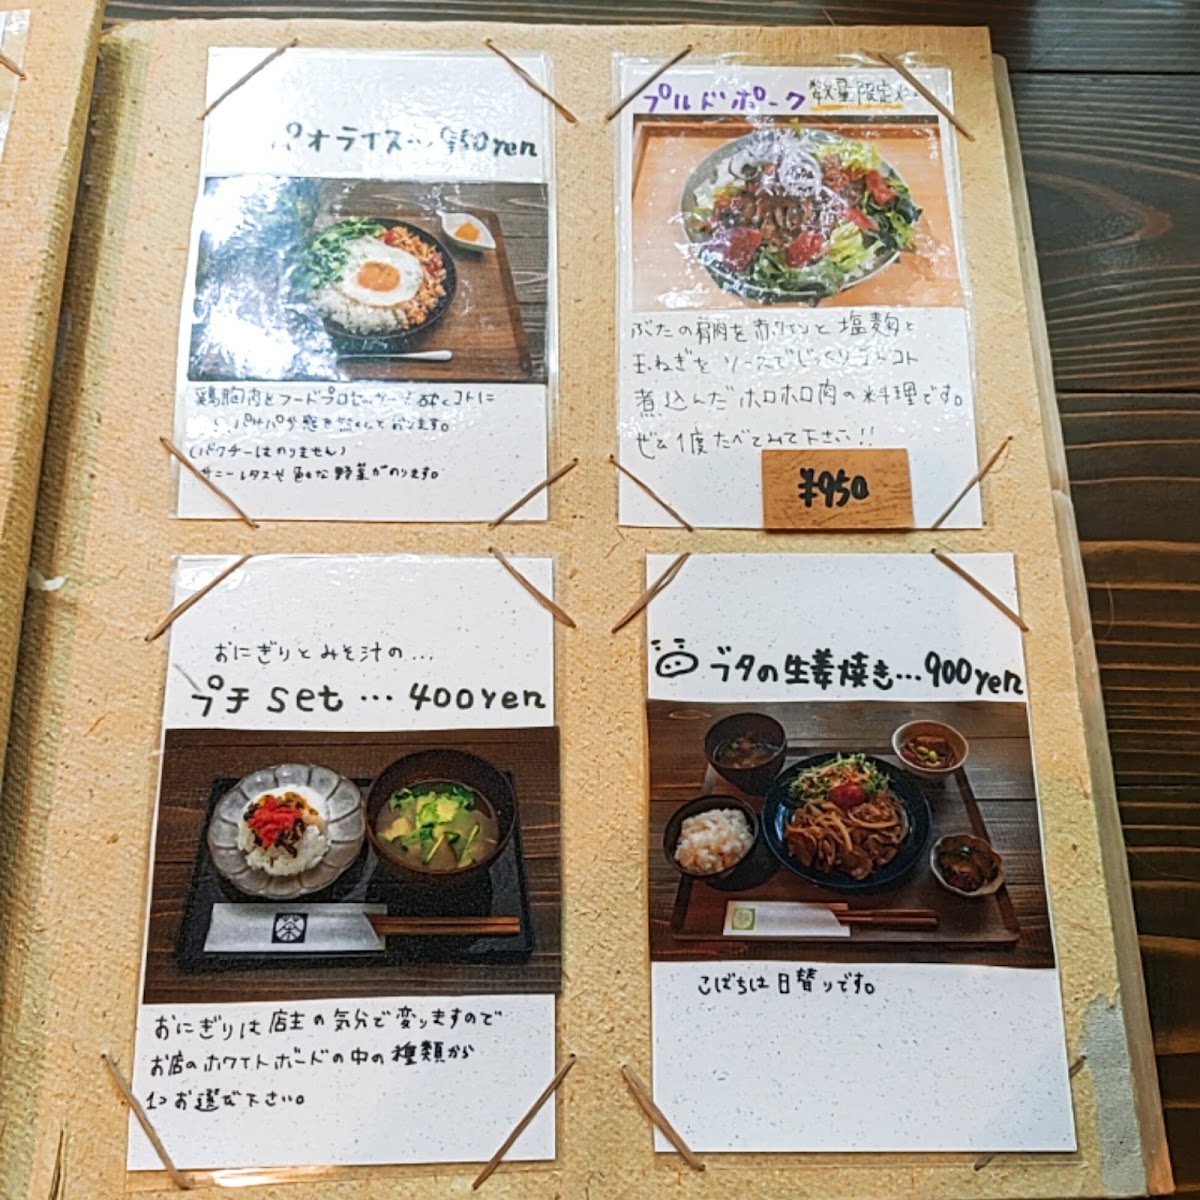 パオライス… 950yen
鶏胸肉をフードプロセッサーで
パサパサ感を無くしております。
(パクチーはのりません)
サニーレタスや色々な野菜がのります。
プルドポーク 数量限定
ぶたの肩肉を赤ワインと塩麹と
玉ねぎをソースでじっくりコトコト
煮込んだホロホロ肉の料理です。
ぜひ1度たべてみて下さい!!
¥950
おにぎりとみそ汁の...
プチset … 400yen
茶
おにぎりは店主の気分で変りますので
お店のホワイトボードの中の種類から
1コお選び下さい。
ブタの生姜焼き…900yen
こばちは日替りです。